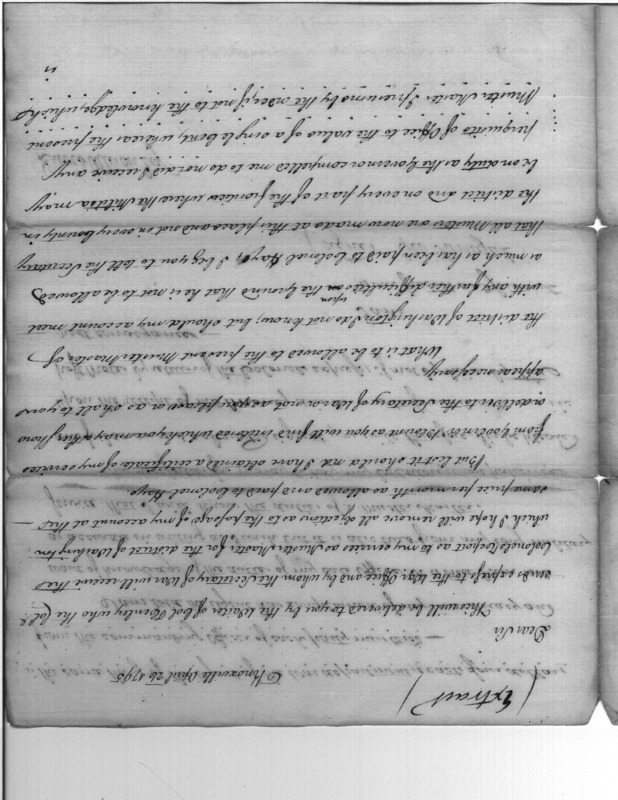 (Extract)
Knoxville April 26th 1795
Dear Sir
This will be delivered to you by the Waiter of Col. Henley who the Col.
sends express to the War Office and by whom the Secretary of War will receive the
Colonels report as to my services as Muster Master for the district of Washington.
which I hope will remove all objections to the passage of my account at the
same price per month as allowed and paid to Colonel Hays
But lest it should not I have obtained a certificate of my services
from Governor Blount as you will find enclosed which you may either show
or deliver to the Secretary of War or not as you please or as shall to you
appear necessary.
What is to be allowed to the present Muster Master of
the district of Washington I do not know, but should my account meet
with any farther difficulties upon the ground that he is not to be allowed
as much as has been paid to Colonel Hays I beg you to tell the Secretary
that all Musters are now made at this place and not in every County in
the district and on every part of the frontiers where the Militia may
be on duty as the Governor compelled me to do nor did I receive any
perquisites of Office to the value of a single cent, whereas the present
Muster Master I presume by the order, if not to the knowledge, which